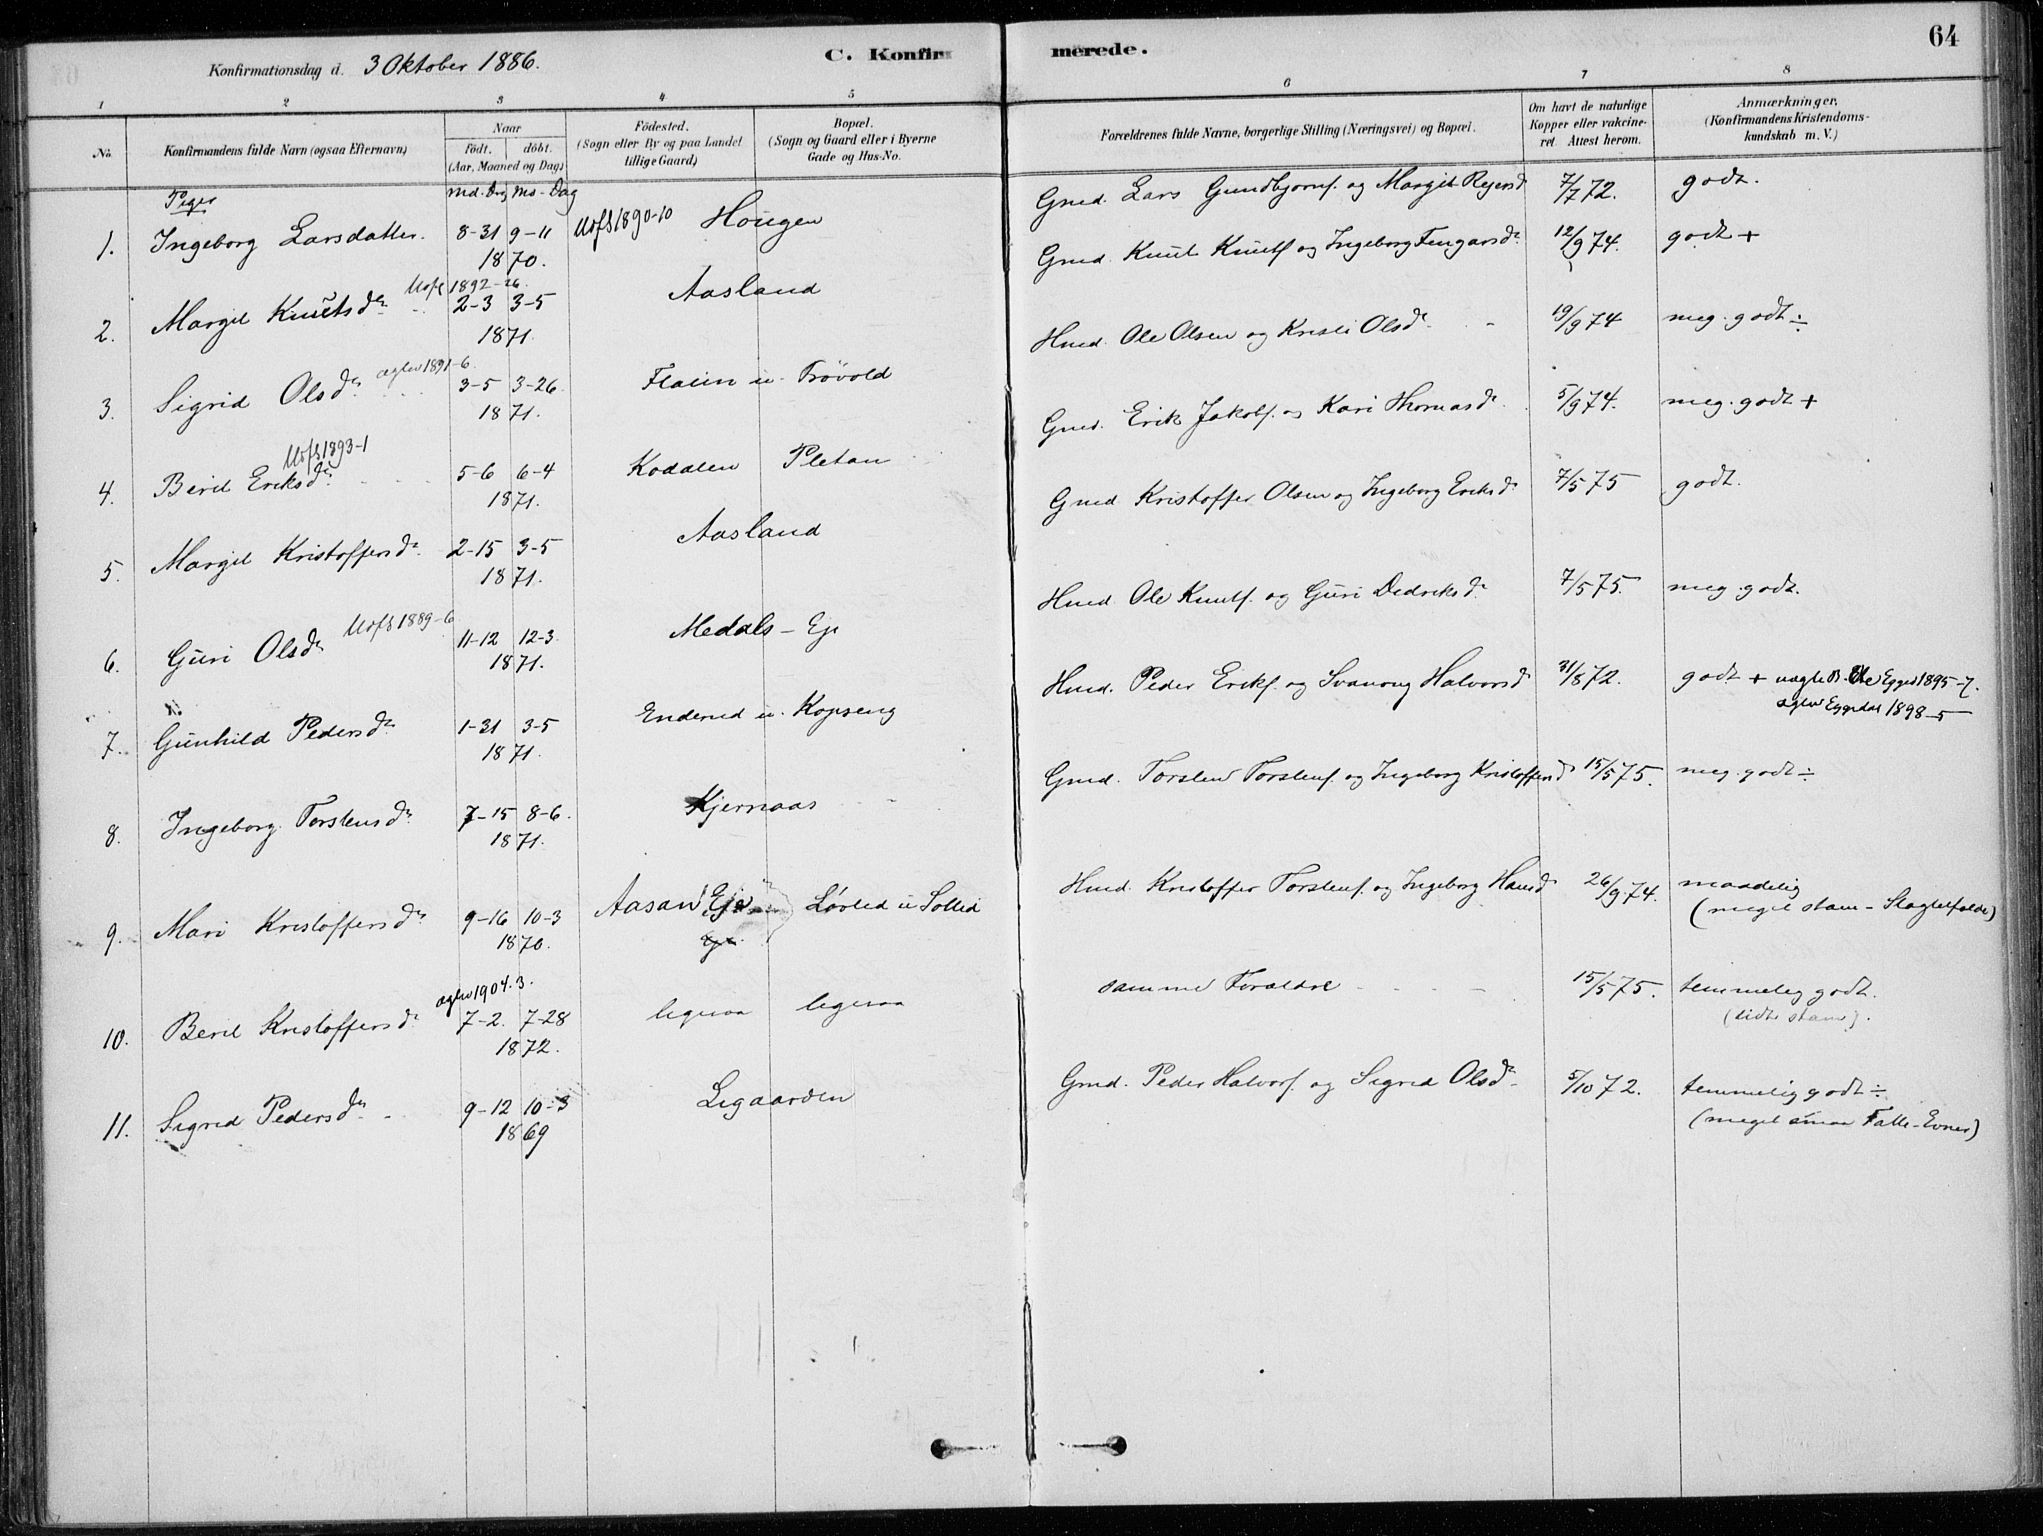 64
Konfirmationsdag d. 3 Oktober 1886.
C. Konfir merede.
1 2 3 4 5 6 7 8
No.
Konfirmandens fulde Navn (ogsaa Efternavn)
Naar
födt. döbt.
(Aar, Maaned og Dag)
Födested.
(Sogn eller By og paa Landet
tillige Gaard)
Bopæl.
(Sogn og Gaard eller i Byerne
Gade og Hus-No.
Forældrenes fulde Navne, borgerlige Stilling (Næringsvei) og Bopæl.
Om havt de naturlige
Kopper eller vakcine-
ret. Attest herom.
Anmærkninger.
(Konfirmandens Kristendoms-
kundskab m. V.)
Piger
Md. Dag Md - Dag
1. Ingeborg Larsdatter. 8-31 9-11 Uofs 1890-10 Hougen Gmd. Lars Gundbjornf. og Margit Reiersd 7/7 72. godt.
1870.
Uofs 1892-26
2. Margit Knutsdr 2-3 3-5 Aasland Gmd. Knut Knutf og Ingeborg Fingarsdr 12/9 74. godt +
1871.
aglev 1891-6
3. Sigrid Olsdr 3-5 3-26 Flaten u. Trövold Hmd. Ole Olsen og Kristi Olsdr 19/9 74 meg. godt ÷
1871.
Uofs 1893-1
4. Berit Eriksdr 5-6 6-4 Kodalen Pletan Gmd. Erik Jakobf. og Kari Thomasdr 5/9 74. meg. godt +
1871.
5. Margit Kristoffersdr 2-15 3-5 Aasland Gmd Kristoffer Olsen og Ingeborg Eriksdr 7/5 75 godt.
1871.
6. Guri Olsdr Uofs 1889-6 11-12 12-3 Medals - Eje Hmd. Ole Knutf. og Guri Dedriksdr 7/5 75. meg. godt.
1871.
7. Gunhild Pedersdr 1-31 3-5 Enderud u. Kopseng Hmd. Peder Erikf. og Svanaug Halvorsd 31/8 72. godt + uægte B. Ole Egged 1895-7.
aglev Eggedal 1898-5
1871.
8. Ingeborg Torstensdr 7-15 8-6. Kjernaas Gmd. Torsten Torstenf. og Ingeborg Kristoffersd 15/5 75. meg. godt ÷
1871.
9. Mari Kristoffersdr 9-16 10-3 Aasan Eje Lövlid u Sollid Hmd. Kristoffer Torstenf. og Ingeborg Hansd 26/9 74. maadelig
1870. Eje (meget stam - Slagtilfælde)
aglev 1904.3.
10. Berit Kristoffersdr 7-2. 7-28 ligesaa ligesaa samme Forældre 15/5 75. temmelig godt.
1872. (lidt stam).
11. Sigrid Pedersdr 9-12 10-3 Ligaarden Gmd. Peder Halvorf. og Sigrid Olsdr 5/10 72. temmelig godt ÷
1869 (meget smaa Fatte-Evner)